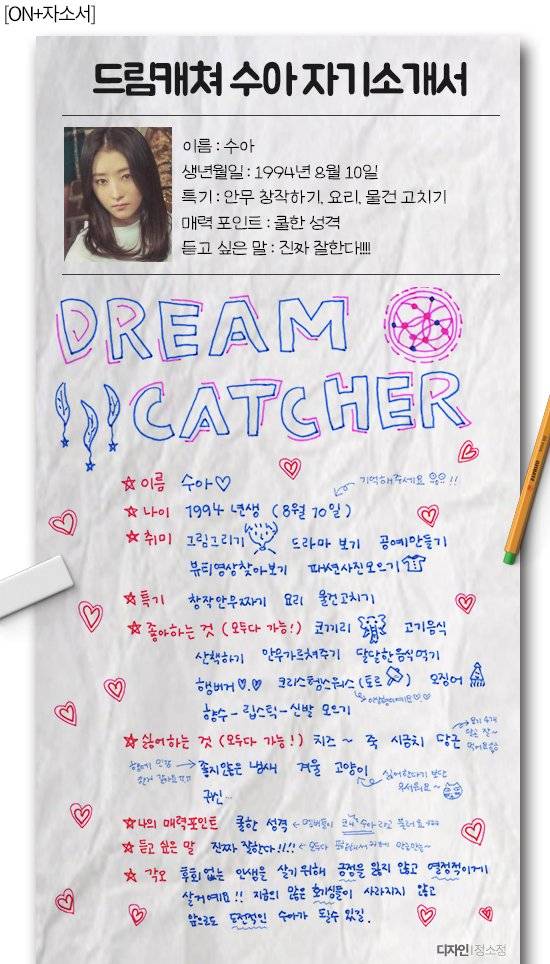 [ON+자소서]
드림캐쳐 수아 자기소개서
이름 : 수아
생년월일 : 1994년 8월 10일
특기 : 안무 창작하기, 요리, 물건 고치기
매력 포인트 : 쿨한 성격
듣고 싶은 말 : 진짜 잘한다!!!!
DREAM
CATCHER
☆이름 수아♡
기억해주세요 !!
☆나이 1994 년생 (8월 10일)
☆취미 그림그리기 드라마 보기 공예만들기
뷰티영상찾아보기 패션사진모으기
☆특기 창작안무짜기 요리 물건고치기
☆좋아하는 것 (모두다 가능!) 코끼리 고기음식
산책하기 안무가르쳐주기 달달한음식먹기
햄버거♡.♡ 크리스헴스워스 (토르) 오징어
이상형이에요♡♡
향수 - 립스틱 - 신발 모으기
☆싫어하는 것 (모두다 가능!) 치즈 ~ 죽 시금치 당근
좋지않은 냄새 겨울 고양이
싫어한다기 보단
무서워요~
귀신...
☆나의 매력포인트 쿨한 성격 ← 멤버들이 수아라고 불러요
☆듣고 싶은 말 진짜 잘한다!!!! ←
☆각오 후회 없는 인생을 살기위해 긍정을 잃지 않고 열정적이게
살거에요!! 지금의 많은 호기심들이 사라지지 않고
앞으로도 도전적인 수아가 되길 있길.
디자인 | 정소정